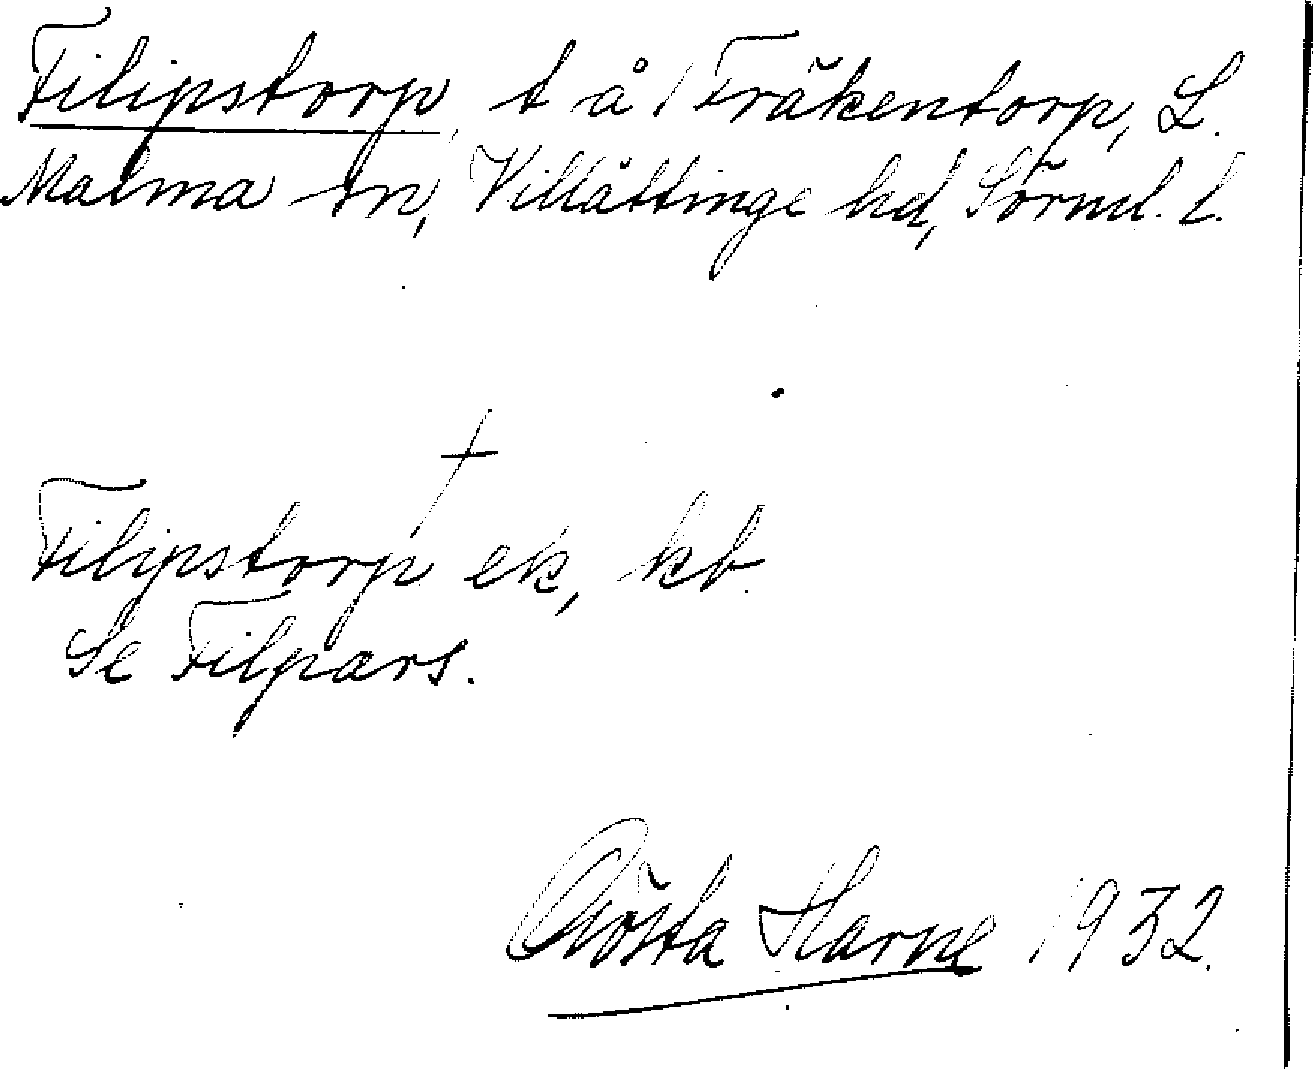 Filipstorp, t å 1 Fräkentorp, L.
Malma sn, Villåttinge hd, Sörml. l.
+
Filipstorp ek, kb.
Se Filpars.
Gösta Harne 1932.